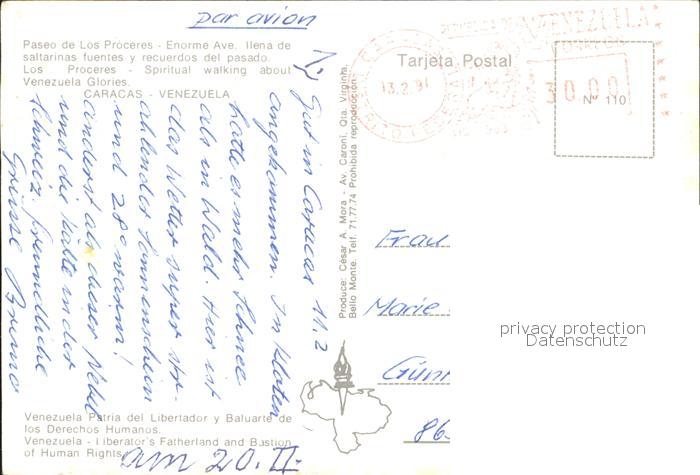 par avion
Paseo de Los Próceres - Enorme Ave. llena de
saltarinas fuentes y recuerdos del pasado.
Los Próceres - Spiritual walking about
Venezuela Glories.
CARACAS - VENEZUELA
11.2
Gut in Caracas
angekommen. In Kloten
hatte es mehr Schnee
als in Wald. Hier ist
das Wetter super str-
ahlender Sonnenschein
und 28° warm!
anderst als dieser Nebel
und die Kälte in der
Schweiz. Freundliche
Grüsse Bruno
Venezuela Patria del Libertador y Baluarte de
los Derechos Humanos.
Venezuela - Liberator's Fatherland and Bastion
of Human Rights
am 20. II.
Produce: César A. Mora - Av. Caroní, Qta. Virginia,
Bello Monte. Telf. 71.77.74 Prohibida reproducción
Tarjeta Postal
VENEZUELA
13.2.91
30.00
Nº 110
Frau
Marie
Günt
863
privacy protection
Datenschutz